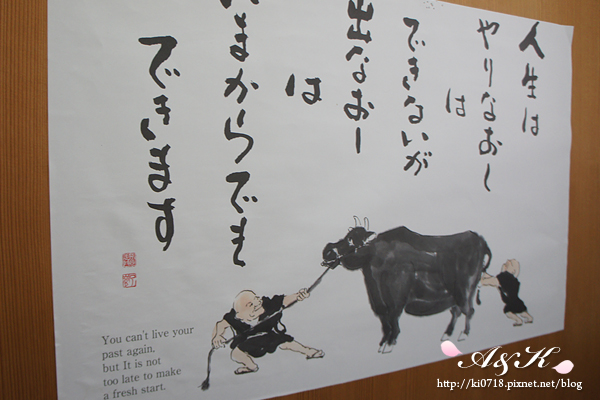 人生は
やりなおし
は
できないが
出なおし
は
いまからでも
できます
You can't live your
past again,
but It is not
too late to make
a fresh start.
A&K
http://ki0718.pixnet.net/blog